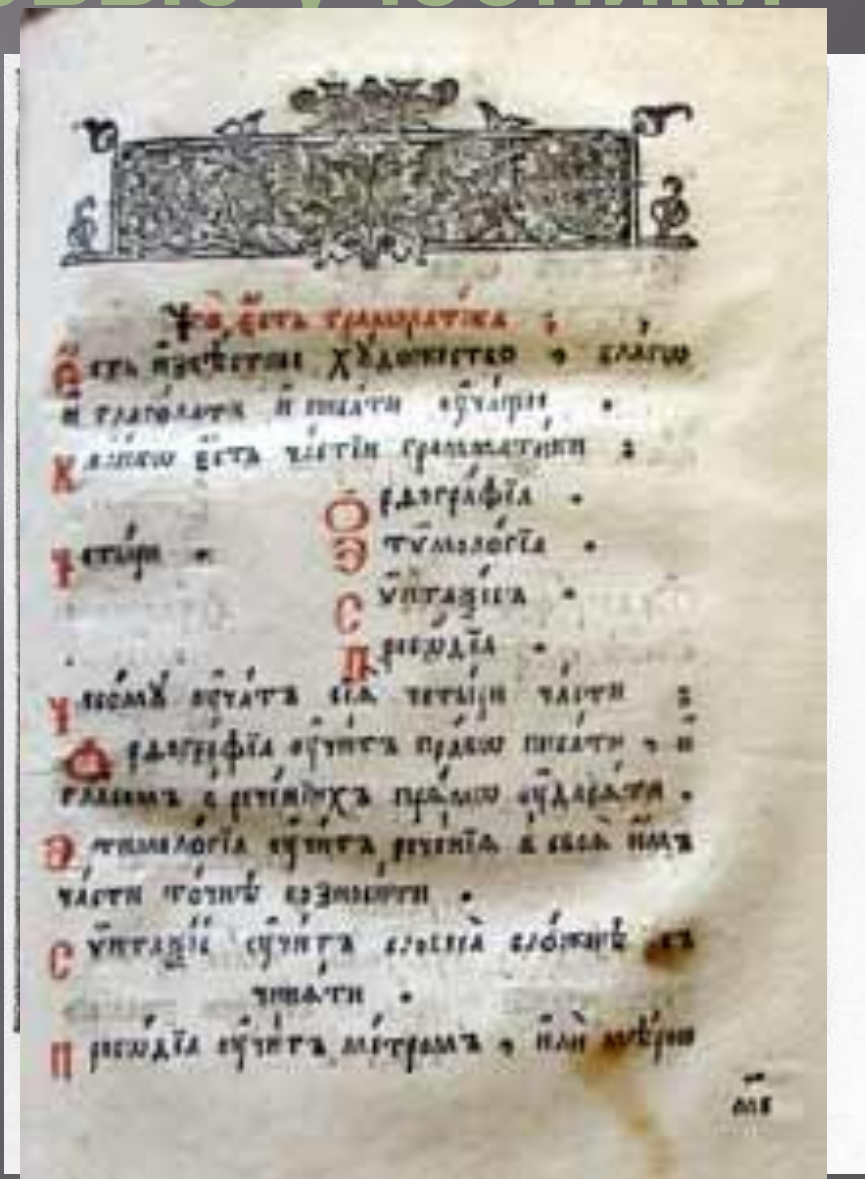 учебники
Что̀ є҆́сть грамма́тїка ;
Е҆́сть и҆звѣ́стное хꙋдо́жество , бла́гѡ
и҆ глаго́лати и҆ писа́ти ѹ҆ча́щее .
Коли́кѡ є҆́сть ча́стїй грамма́тики ;
Ѻ҆рѳогра́фїа .
Четы́ри . Этѷмоло́гїа .
Сѷ́нтаѯїсъ .
Просѡ́дїа .
Чесомꙋ̀ ѹ҆ча́тъ сїѧ̀ четы́ри ча́сти ;
Ѻ҆рѳогра́фїа ѹ҆чи́тъ пра́вѡ писа́ти , и҆
гла́сомъ в рече́нїихъ прѧ́мѡ ѹ҆дарѧ́ти .
Этимоло́гїа ѹ҆чи́тъ рече́нїѧ в своѧ̀ и҆̀мъ
ча́сти то́чнѣ возноси́ти .
Сѷ́нтаѯїс ѹ҆чи́тъ словеса̀ сло́жнѣ съ
чинѧ́ти .
Просѡ́дїа ѹ҆чи́тъ ме́тромъ , и҆лѝ мѣ́рою